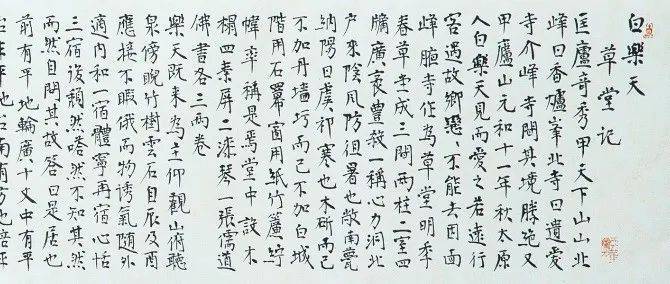 白樂天
草堂记
匡廬奇秀甲天下山山北
峰曰香爐峯北寺曰遺愛
寺介峰寺間其境勝絕又
甲廬山元和十一年秋太原
人白樂天見而愛之若遠行
客過故鄉戀、不能去因面
峰腋寺作為草堂明年
春草堂成三間兩柱二室四
牖廣袤豊殺一稱心力洞北
户來陰風防徂暑也敞南甍
納陽日虞祁寒也木斫而已
不加丹墙圬而已不加白墄
階用石冪窗用紙竹簾紵
幃率稱是焉堂中設木
榻四素屏二漆琴一張儒道
佛書各三兩卷
樂天既来為主仰觀山俯聽
泉傍睨竹樹雲石自辰及酉
應接不暇俄而物誘氣随外
適内和一宿體寧再宿心恬
三宿後頹然嗒然不知其然
而然自問其故答曰是居也
前有平地輪廣十丈中有平